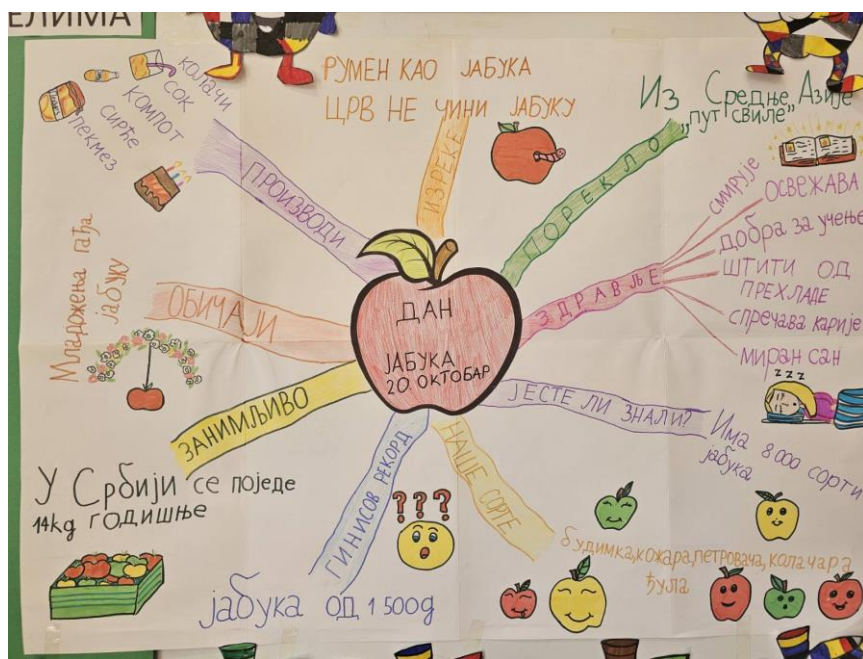 ЕЛИМА
ДАН
ЈАБУКА
20. ОКТОБАР
ПРОИЗВОДИ
колачи
сок
компот
сирће
пекмез
ИЗРЕКЕ
РУМЕН КАО ЈАБУКА
ЦРВ НЕ ЧИНИ ЈАБУКУ
ПОРЕКЛО
Из Средње Азије
„пут свиле”
ЗДРАВЉЕ
смирује
освежава
добра за учење
штити од
прехладе
спречава карије
миран сан
zzz
ЈЕСТЕ ЛИ ЗНАЛИ?
Има 8 000 сорти
јабука
НАШЕ СОРТЕ
будимка, кожара, петровача, колачара
ђула
ГИНИСОВ РЕКОРД
???
јабука од 1 500g
ЗАНИМЉИВО
У Србији се поједе
14kg годишње
ОБИЧАЈИ
Младожења гађа
јабуку